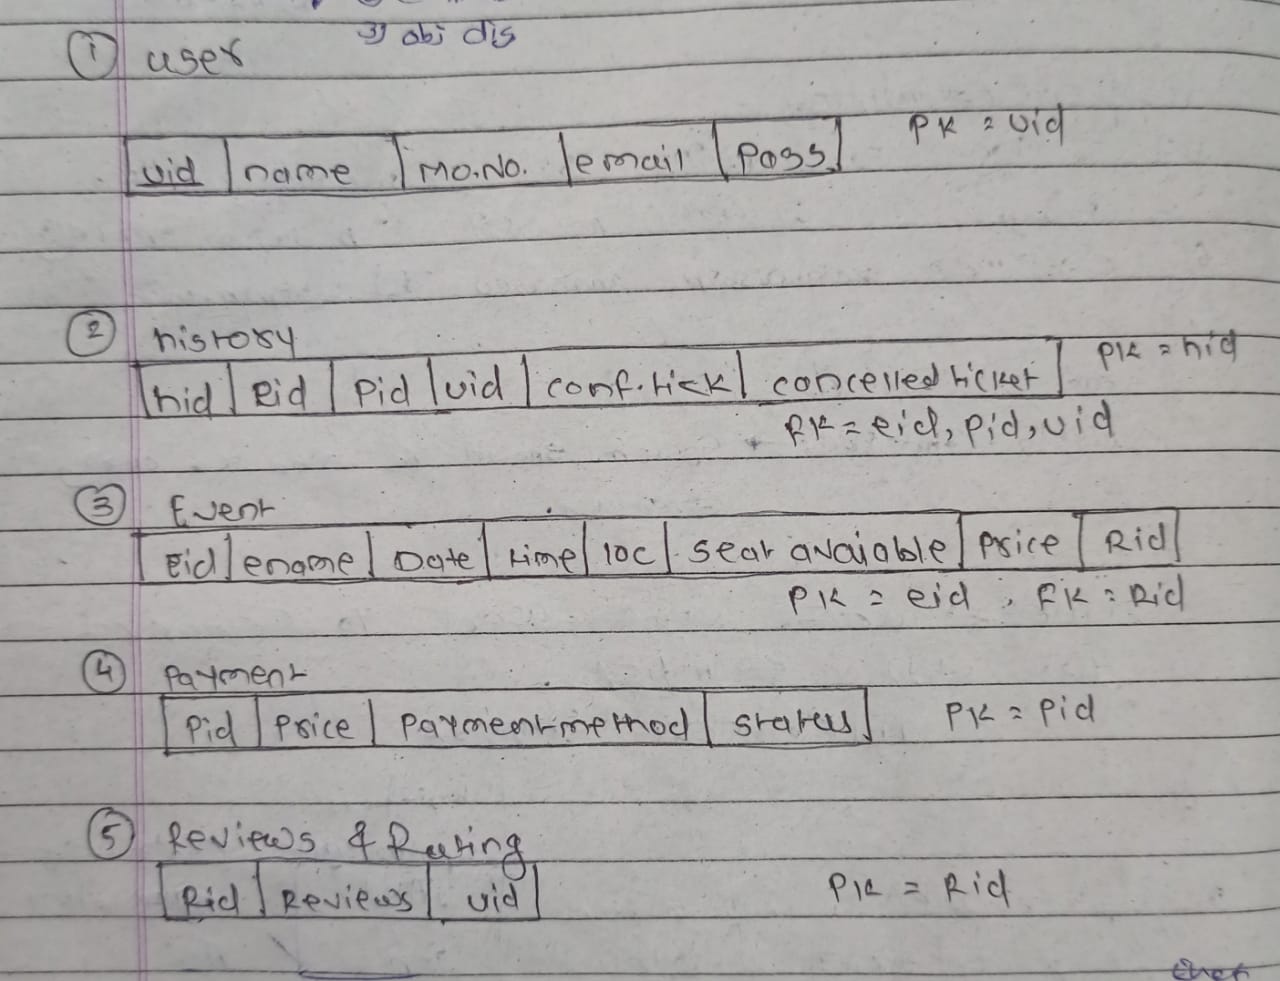 3) obj dis
① user
uid name Mo.No. email Pass PK = uid
② history
hid Eid Pid uid conf.tick cancelled ticket PK = hid
FK = eid, pid, uid
③ Event
Eid ename Date time loc seat avaiable Price Rid
PK = eid, FK = Rid
④ Payment
Pid Price Payment method status PK = Pid
⑤ Reviews & Rating
Rid Reviews uid PK = Rid